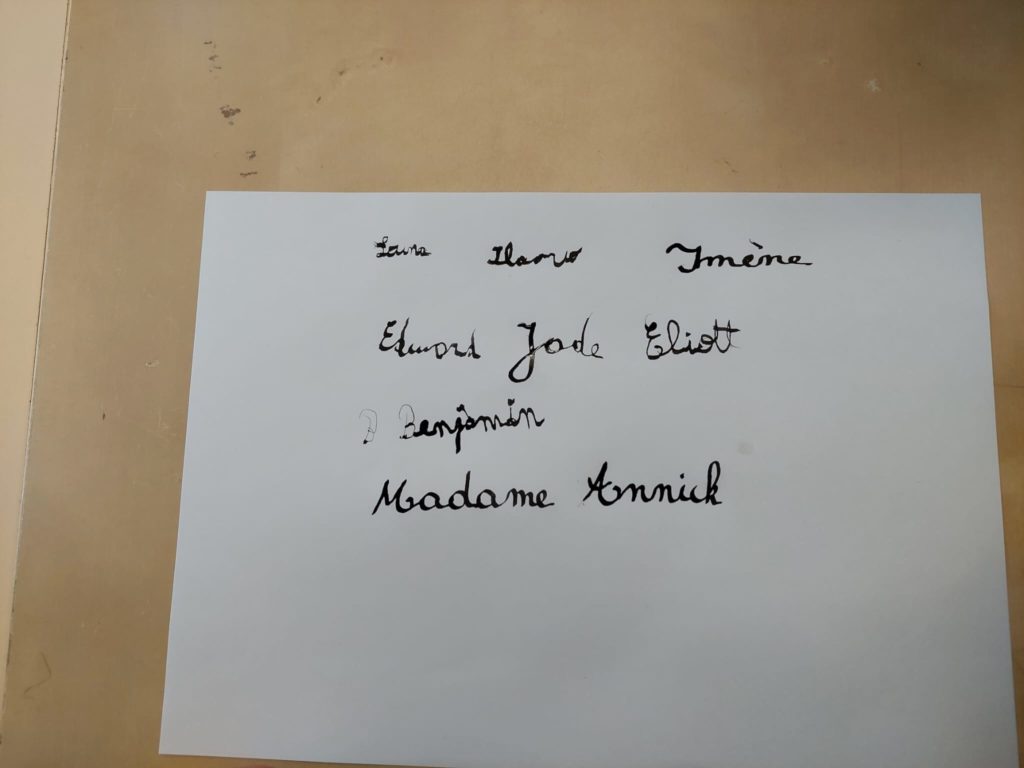 Ilario Imène
Edward Jade Eliott
B Benjamin
Madame Annick